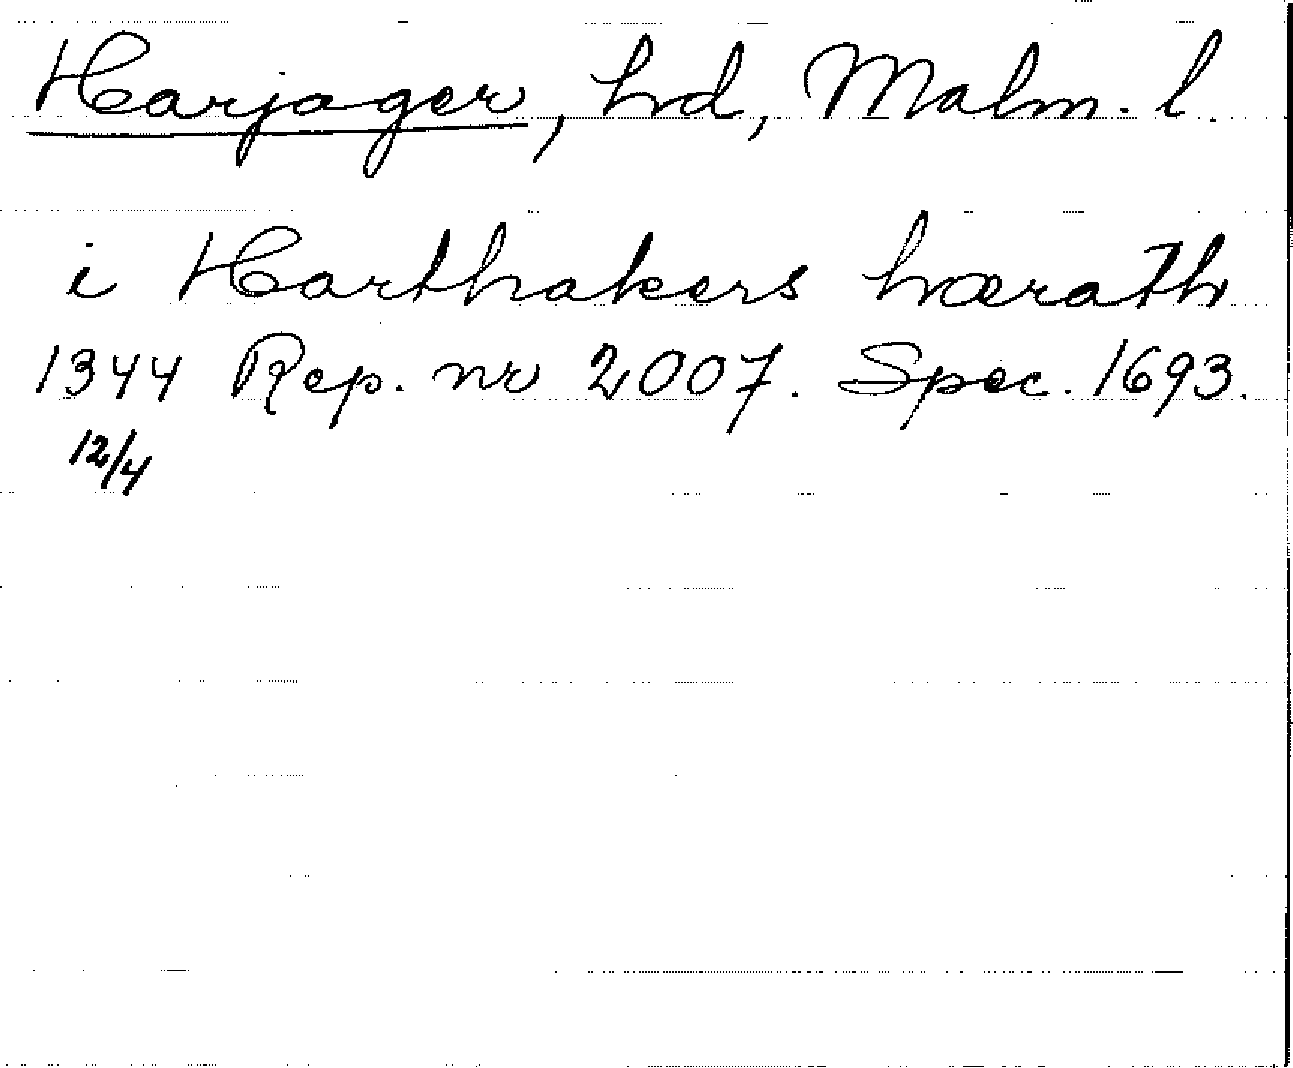 Harjager, hd, Malm. l.
i Harthakers hærath
1344 Rep. nr 2007. Spec. 1693.
12/4